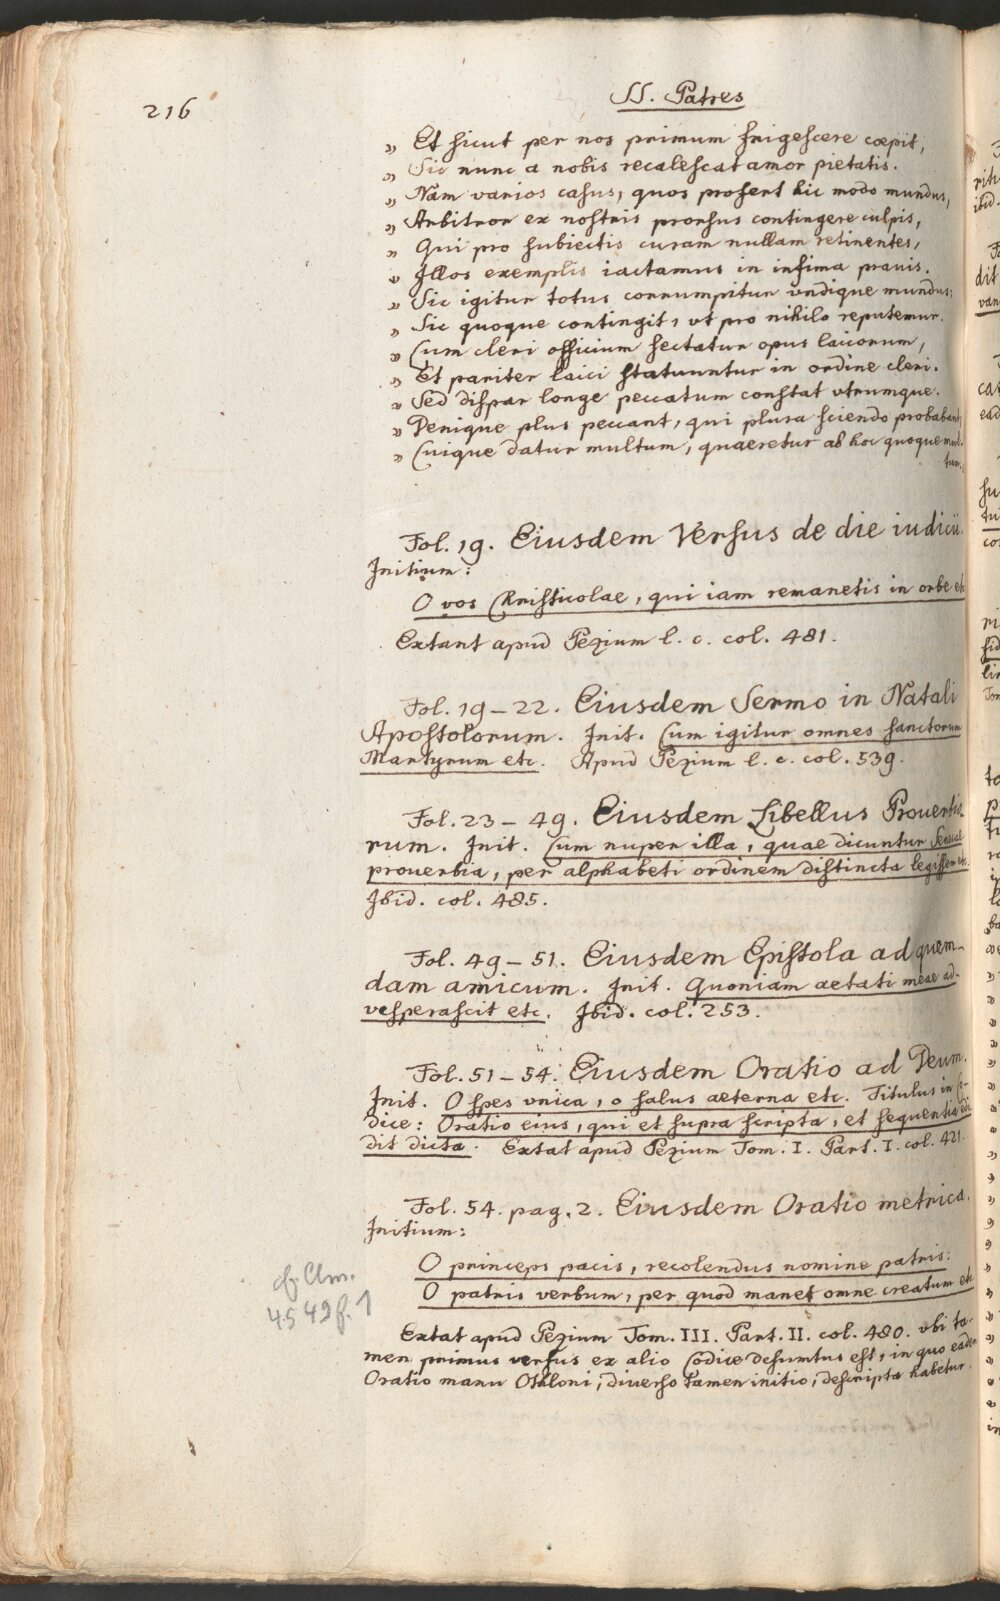 216
SS. Patres
„ Et sicut per nos primum frigescere cœpit,
„ Sic nunc a nobis recalescat amor pietatis.
„ Nam varios casus, quos profert hic modo mundus,
„ Arbitror ex nostris prorsus contingere culpis,
„ Qui pro subiectis curam nullam retinentes,
„ Illos exemplis iactamus in infima pravis.
„ Sic igitur totus corrumpitur vndique mundus:
„ Sic quoque contingit, vt pro nihilo reputemur.
„ Cum cleri officium sectatur opus laicorum,
„ Et pariter laici statuuntur in ordine cleri.
„ Sed dispar longe peccatum constat vtrumque.
„ Denique plus peccant, qui plura sciendo probabant,
„ Cuique datur multum, quaeretur ab hoc quoque mul-
tum.
Fol. 19. Eiusdem Versus de die iudicii.
Initium:
O vos Christicolae, qui iam remanetis in orbe etc
Extant apud Pezium l. c. col. 481.
Fol. 19 – 22. Eiusdem Sermo in Natali
Apostolorum. Init. Cum igitur omnes sanctorum
Martyrum etc. Apud Pezium l. c. col. 539.
Fol. 23 – 49. Eiusdem Libellus Prouerbio-
rum. Init. Cum nuper illa, quae dicuntur Senecae
prouerbia, per alphabeti ordinem distincta legissem etc.
Ibid. col. 485.
Fol. 49 – 51. Eiusdem Epistola ad quem-
dam amicum. Init. Quoniam aetati meae ad-
vesperascit etc. Ibid. col. 253.
Fol. 51 – 54. Eiusdem Oratio ad Deum.
Init. O spes vnica, o salus aeterna etc. Titulus in Co-
dice: Oratio eius, qui et supra scripta, et sequentia edi-
dit dicta. Extat apud Pezium Tom. I. Part. I. col. 421.
Fol. 54. pag. 2. Eiusdem Oratio metrica.
Initium:
O princeps pacis, recolendus nomine patris:
O patris verbum, per quod manet omne creatum etc
cf. Clm.
4549 f. 1
Extat apud Pezium Tom. III. Part. II. col. 480. vbi ta-
men primus versus ex alio Codice desumtus est, in quo eadem
Oratio manu Othloni, diverso tamen initio, descripta habetur.